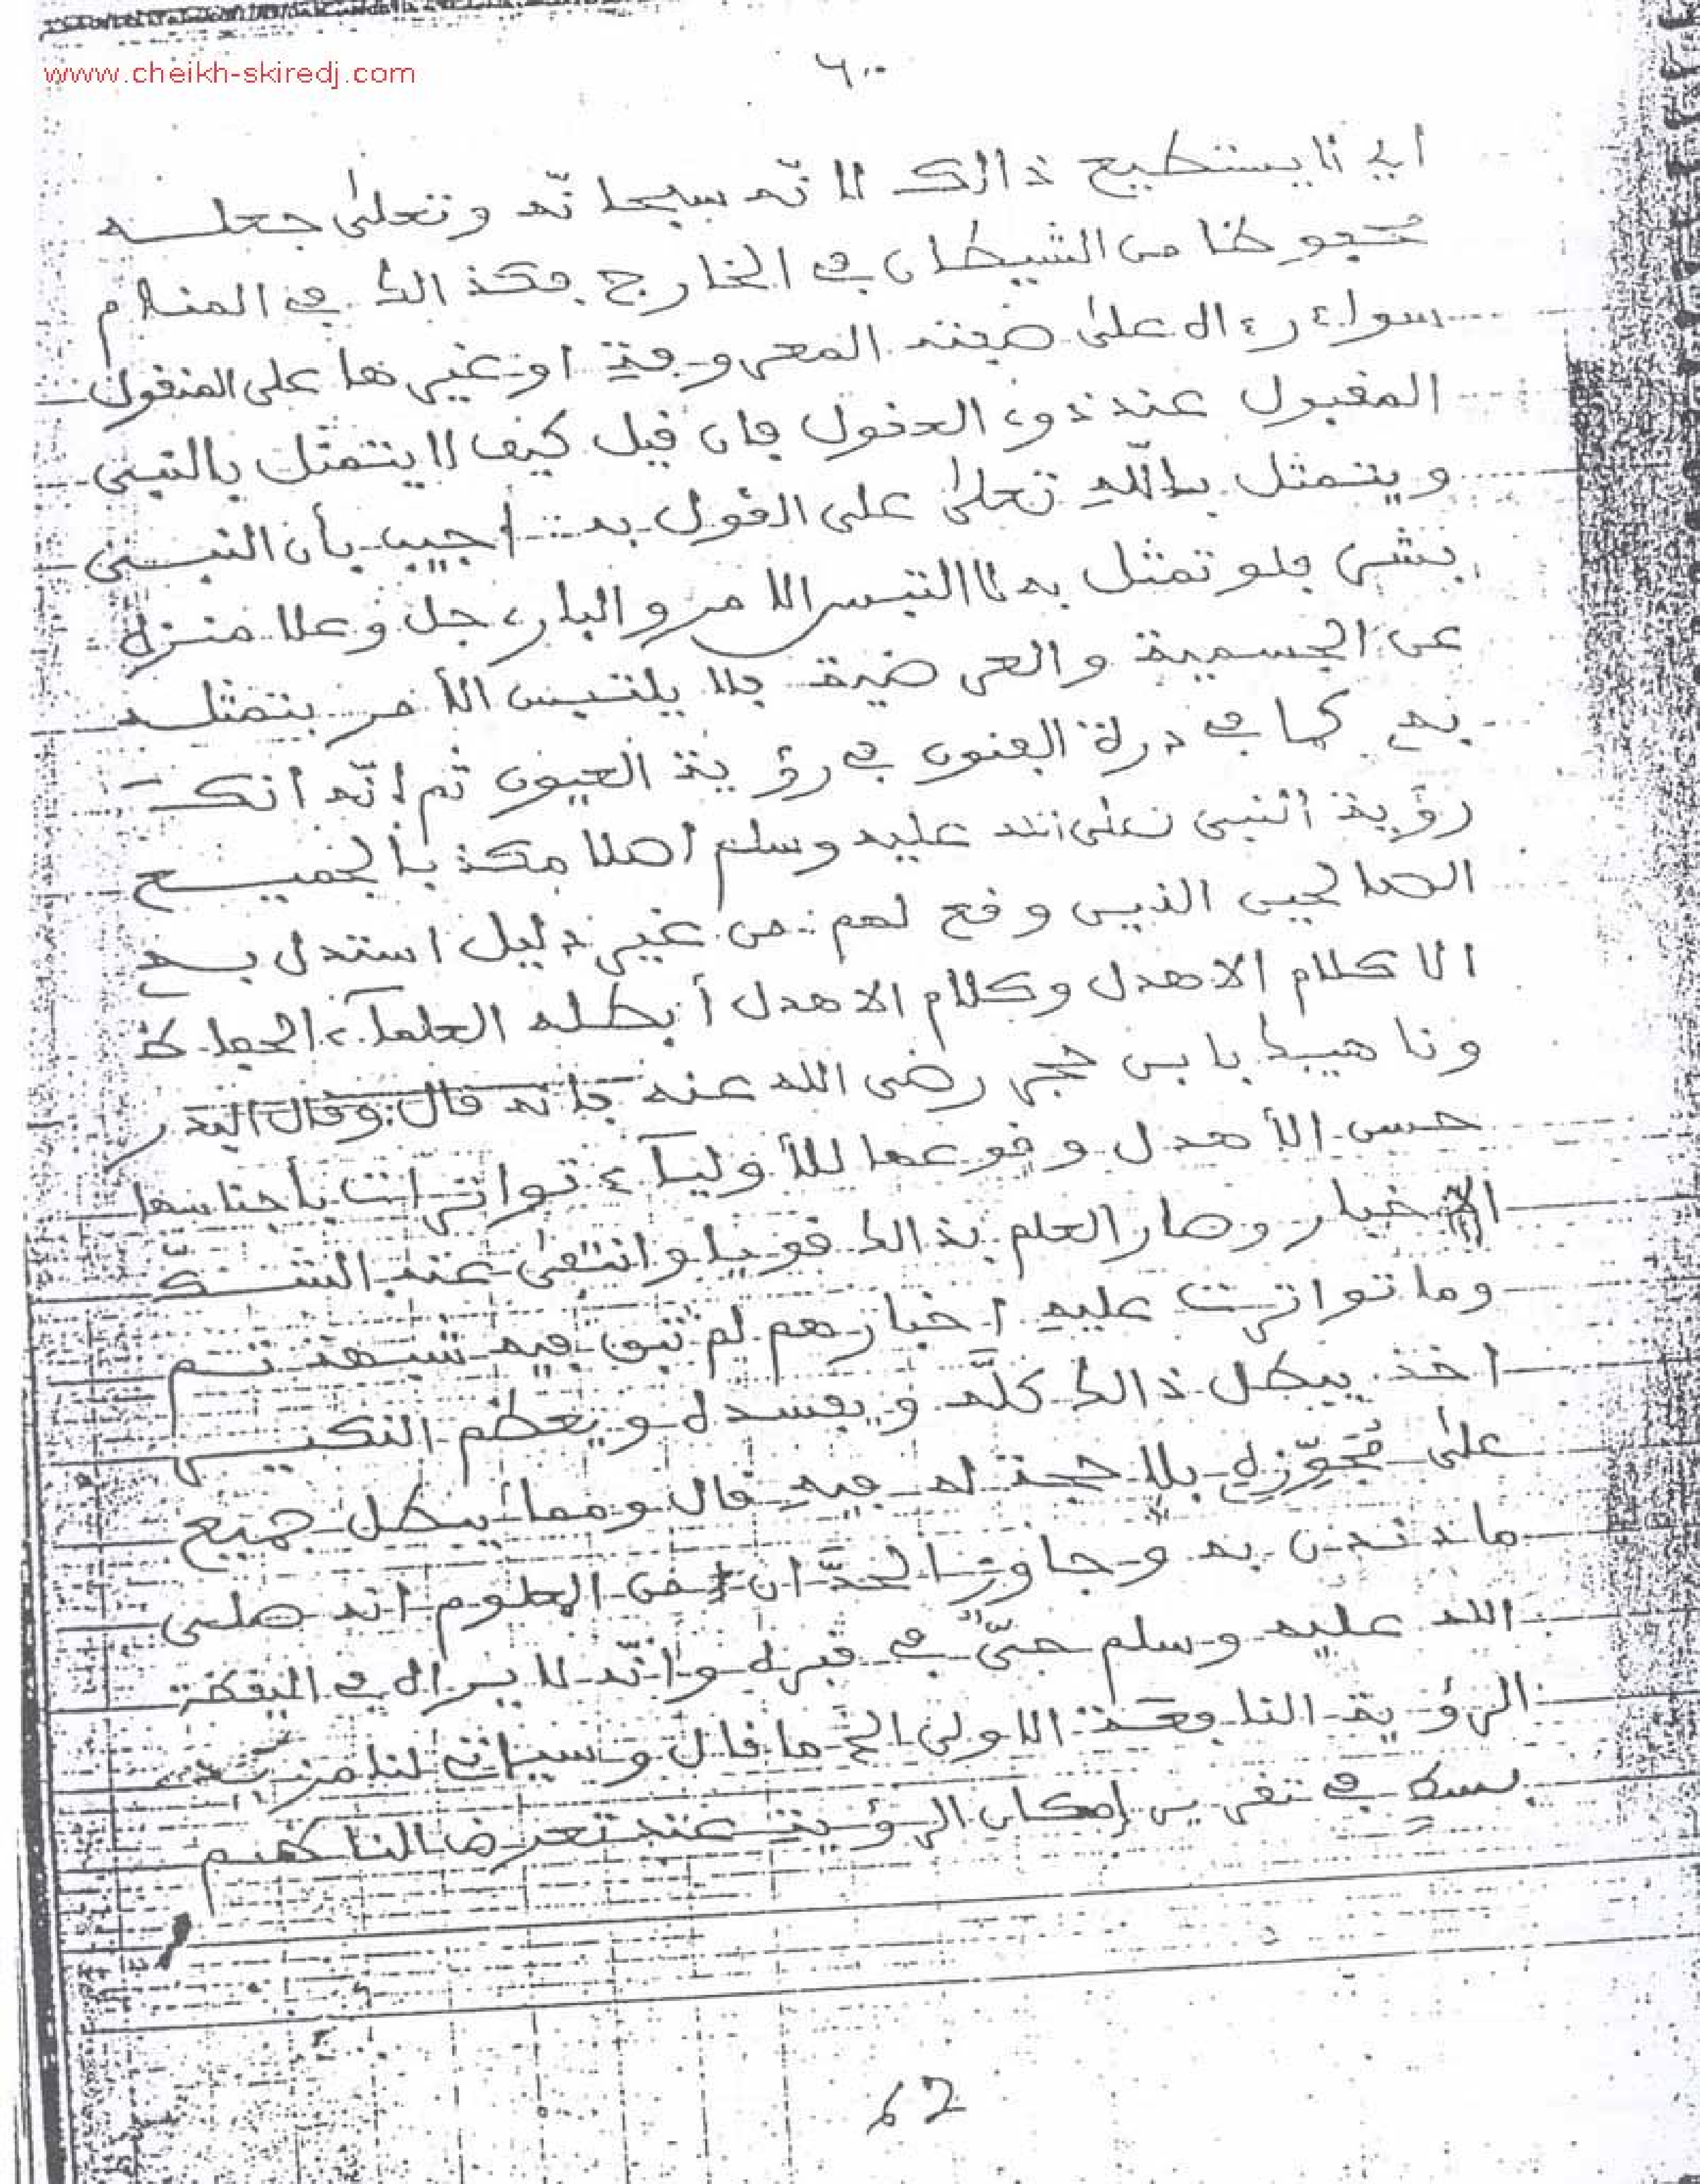 www.cheikh-skiredj.com
٦٠
اي لا يستطيع ذالك لانّه سبحانّه وتعلى جعلـــه
محفوظا من الشيطان في الخارج فكذالك في المنام
سواء رءاه على صفته المعروفة او غيرها على المنقول
المقبول عند ذوى العقول فان قيل كيف لا يتمثل بالنبى
ويتمثل بالله تعلى على القول به اجيب بأن النبــى
بشر فلو تمثل به لالتبس الامر والبارى جل وعلا منزه
عن الجسمية والعرضية فلا يلتبس الأمر بتمثلـه
به كما في درة الفنون في رؤية العيون ثم انّه انكـر
رؤية النبى صلى الله عليه وسلم اصلا مكذبا لجميـــع
الصالحين الذين وقع لهم من غير دليل استدل بــه
الا كلام الاهدل وكلام الاهدل أبطله العلمآء الحفاظ
وناهيك بابن حجر رضى الله عنه فانه قال وقال البدر
حسن الأهدل وقوعها للأوليآء تواترات بأجناسها
الاخبار وصار العلم بذالك قويا وانتفى عنه الشـــكّ
وما تواترت عليه اخبارهم لم تبق فيه شبهة ثــم
اخذ يبطل ذالك كلّه ويفسده ويعظم النكيـــر
على مجوّزه بلا حجة له فيه قال ومما يبطل جميع
ما دندن به وجاوز الحدّ ان من المعلوم انه صلى
الله عليه وسلم حىّ في قبره وانّه لا يراه في اليقظة
الرؤية النافعة الاولى الخ ما قال وسياتى لنا مزيد
بسط في تقرير إمكان الرؤية عند تعرض الناظم
62